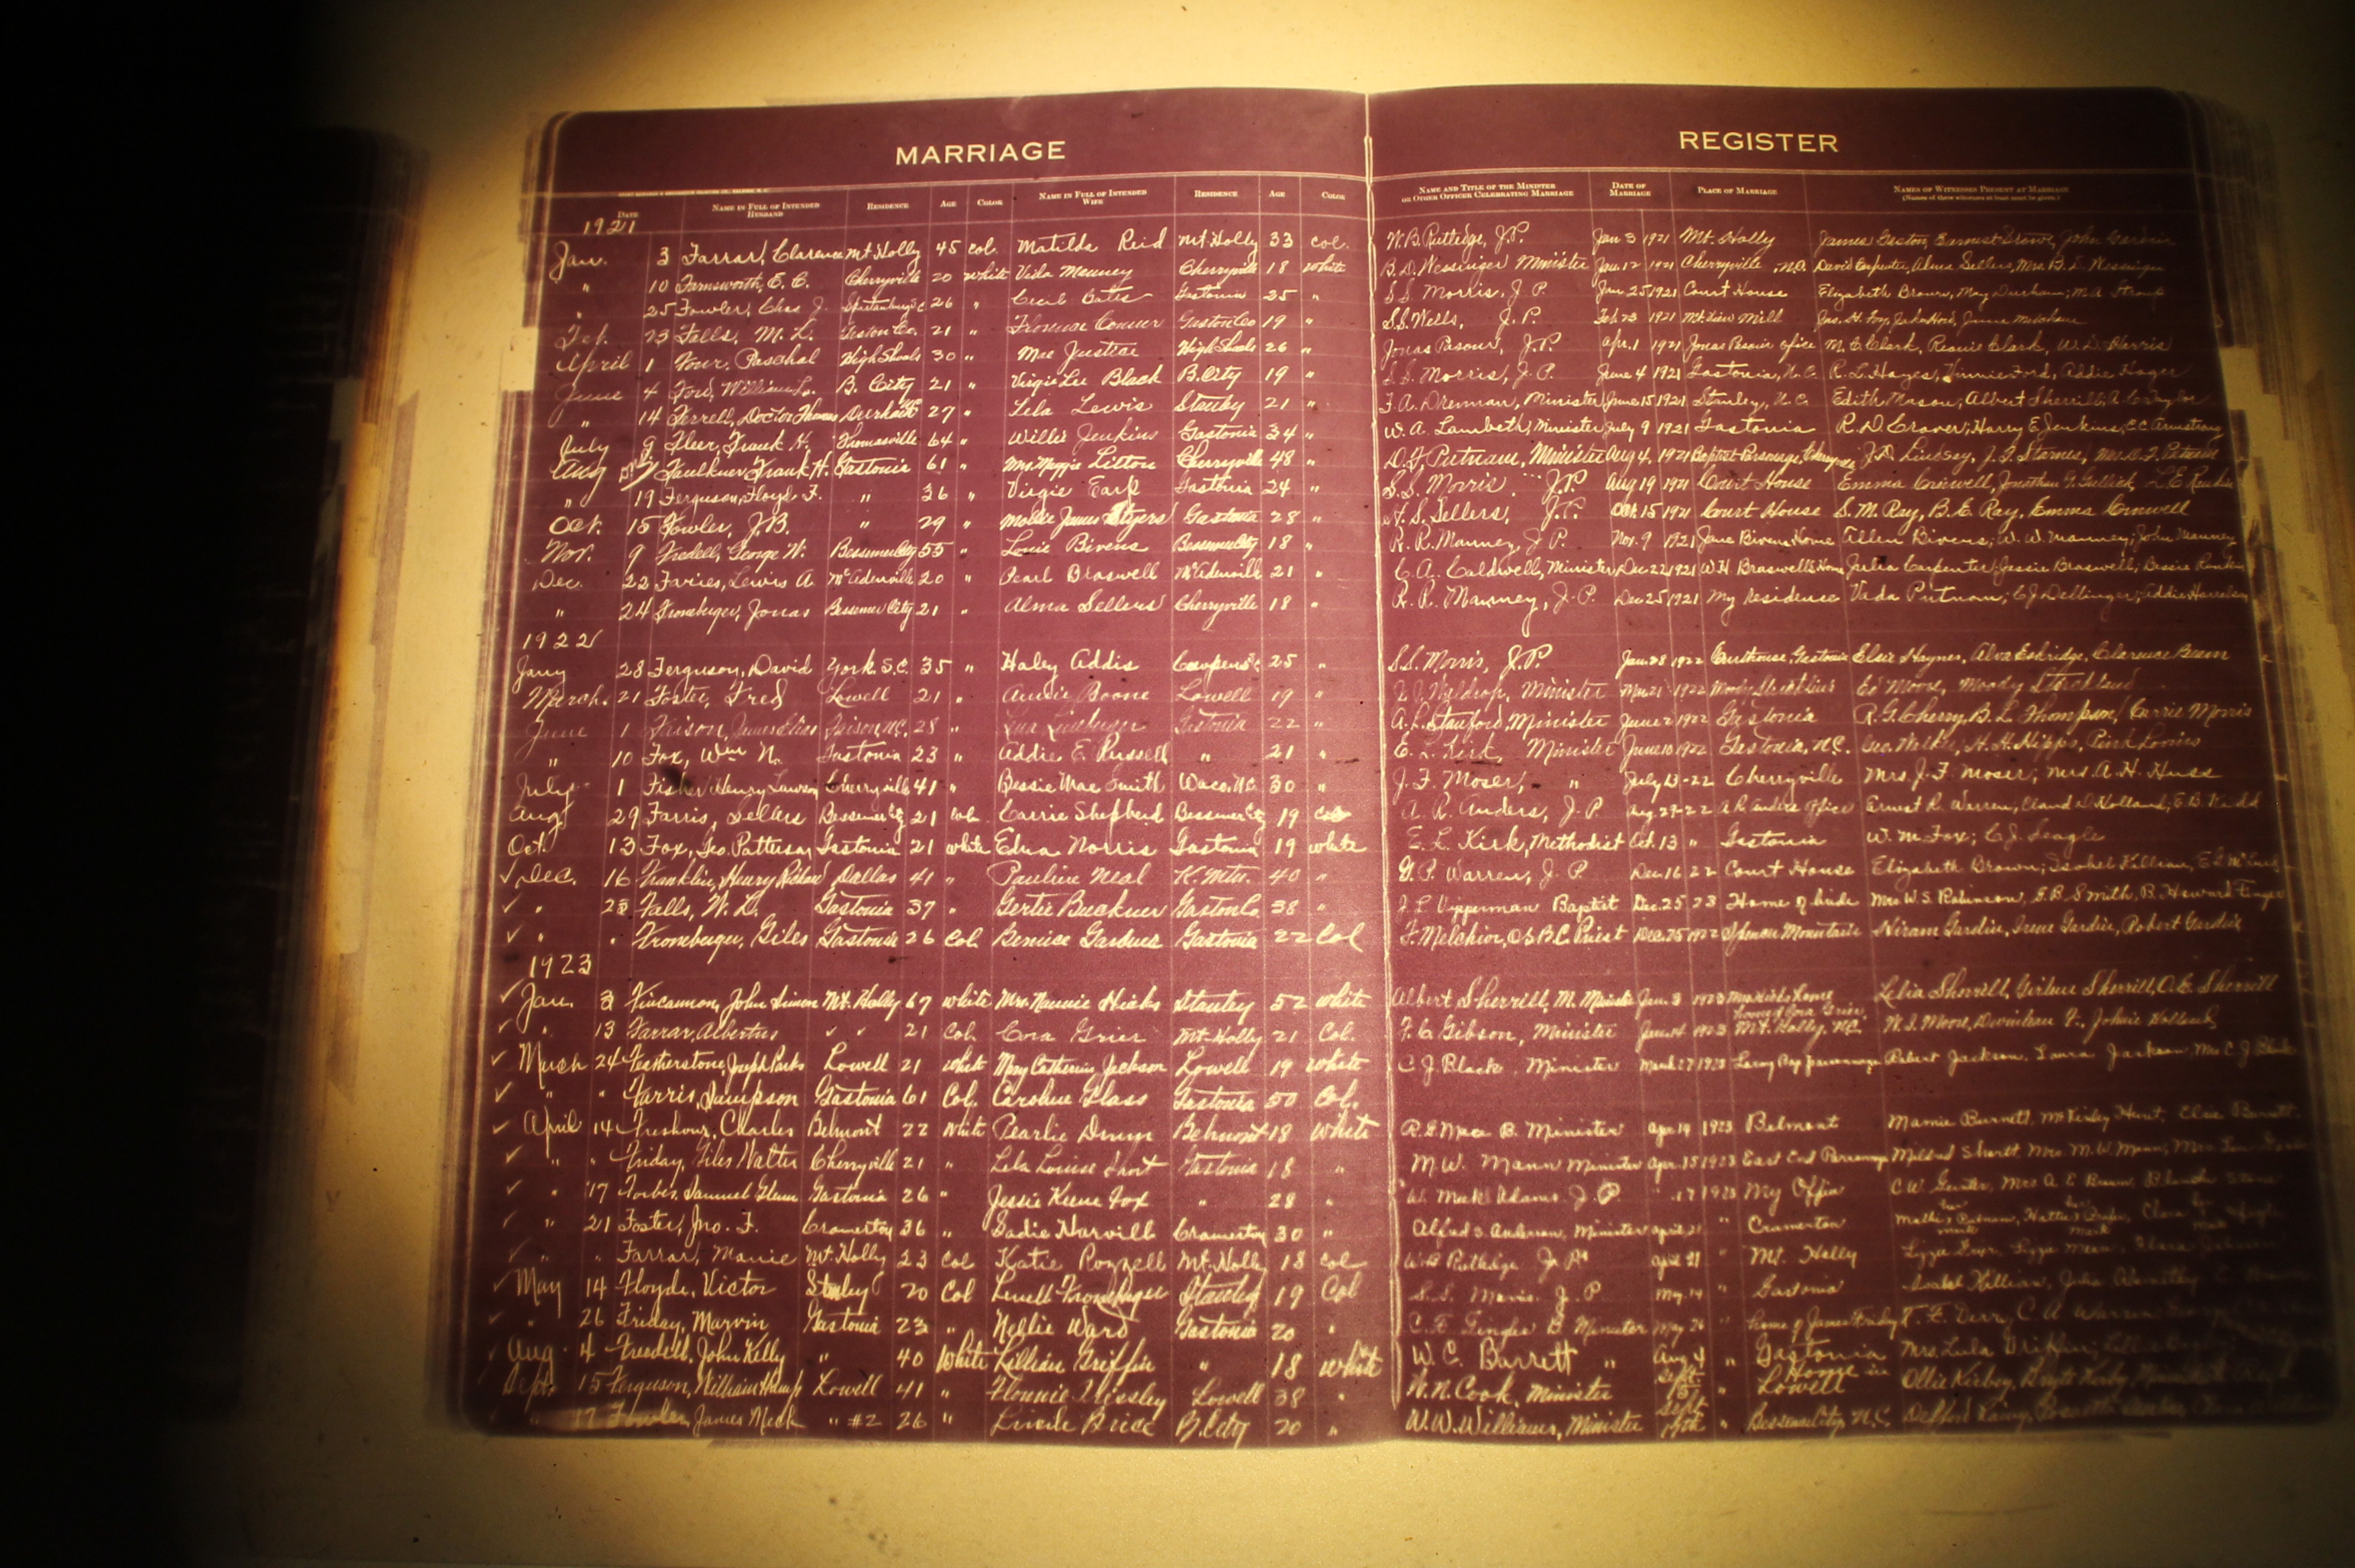 MARRIAGE REGISTER
DATE NAME IN FULL OF INTENDED HUSBAND RESIDENCE AGE COLOR NAME IN FULL OF INTENDED WIFE RESIDENCE AGE COLOR NAME AND TITLE OF THE MINISTER OR OTHER OFFICER CELEBRATING MARRIAGE DATE OF MARRIAGE PLACE OF MARRIAGE NAMES OF WITNESSES PRESENT AT MARRIAGE (Names of three witnesses at least must be given.)
1921
Jan. 3 Farrar, Clarence Mt Holly 45 col. Matilda Reid Mt. Holly 33 col. W.B. Rutledge, J.P. Jan 3 1921 Mt. Holly James Gaston, Earnest Brown, John
" 10 Farnsworth, E. C. Cherryville 20 white Vida Mauney Cherryville 18 white B.D. Wessinger Minister Jan. 12 1921 Cherryville, N.C. David Carpenter, Alma Sellers, Mrs. B. D. Wessinger
" 25 Fowler, Chas J. Spartanburg S.C. 26 " Cecil Bates Gastonia 25 " S.S. Morris, J.P. Jan 25 1921 Court House Elizabeth Brown, May Durham, M.A. Stroup
Feb. 23 Falls, M. L. Gaston Co. 21 " Florence Conner Gaston Co 19 " S.S. Wells, J.P. Feb 23 1921 Mt. View Mill Jas. H. Foy, Jake Hord,
April 1 Four, Paschal High Shoals 30 " Mae Justice High Shoals 26 " Jonas Pasour, J.P. Apr. 1 1921 Jonas Pasour office M. C. Clark, Clark, W. D. Harris
June 4 Ford, William L. B. City 21 " Virgie Lee Black B. City 19 " S.S. Morris, J.P. June 4 1921 Gastonia, N.C. R. L. Hayes, Minnie Ford, Addie Hager
" 14 Ferrell, Doctor Thomas Durham NC 27 " Lela Lewis Stanley 21 " F. A. Drennan, Minister June 15 1921 Stanley, N.C. Edith Mason, Albert Sherrill, A. C. Taylor
July 9 Fleer, Frank H. Thomasville 64 " Willie Jenkins Gastonia 34 " W. A. Lambeth, Minister July 9 1921 Gastonia R. D. Craver, Harry E Jenkins, C.C. Armstrong
Aug Faulkner, Frank H. Gastonia 61 " Mrs Maggie Litton Cherryville 48 " D. F. Putnam, Minister Aug 4, 1921 Baptist Parsonage, Cherryville J.D. Lindsay, J. F. Starnes, Mrs. D. F. Putnam
" 19 Ferguson, Floyd F. " 36 " Virgie Earp Gastonia 24 " S.S. Morris J.P. Aug 19 1921 Court House Emma Cornwell, Jonathan G. Gullick, L. E. Rankin
Oct. 15 Fowler, J.B. " 29 " Mollie James Styers Gastonia 28 " F. S. Sellers, J.P. Oct. 15 1921 Court House S. M. Ray, B. E. Ray, Emma Cornwell
Nov. 9 Fredell, George W. Bessemer City 55 " Louie Bivens Bessemer City 18 " R. R. Mauney, J.P. Nov. 9 1921 Jane Bivens Home Allen Bivens, W. W. Mauney, John Mauney
Dec. 22 Faries, Lewis A. McAdenville 20 " Pearl Braswell McAdenville 21 " C. A. Caldwell, Minister Dec 22 1921 W.H. Braswell's Home Julia Carpenter, Jessie Braswell, Bessie Rankin
" 24 Froneberger, Jonas Bessemer City 21 " Alma Sellers Cherryville 18 " R. R. Mauney, J.P. Dec 25 1921 My residence Vada Putnam, C J Dellinger, Addie Harrelson
1922
Jany 28 Ferguson, David York S.C. 35 " Haley Addis Cowpens S.C. 25 " S.S. Morris, J.P. Jan. 28 1922 Courthouse, Gastonia Elsie Haynes, Alva Eskridge, Clarence Beam
March. 21 Foster, Fred Lowell 21 " Annie Boone Lowell 19 " Waldrop, Minister Mar 21 1922 Moody Stricklin's Ed Moore, Moody
June 1 Faison, James Elias Faison, N.C. 28 " Lineberger Gastonia 22 " A. L. Stanford, Minister June 2 1922 Gastonia R. G. Cherry, B. L. Thompson, Carrie Morris
" 10 Fox, Wm N. Gastonia 23 " Addie E. Russell " 21 " E. L. Kirk, Minister June 10 1922 Gastonia, N.C. Geo. Walker, H. H. Hipps,
July 1 Fisher, Henry Lawson Cherryville 41 " Bessie Mae Smith Waco, N.C. 30 " J. F. Moser, " July 13-22 Cherryville Mrs. J. F. Moser; Mrs. A. H. Huss
Aug 29 Farris, Sellers Bessemer Cy 21 col. Carrie Shepherd Bessemer Cy 19 col A. R. Anders, J.P. Aug. 29-22 A R Anders Office Ernest R. Warren, Claud D Holland, E. B.
Oct. 13 Fox, Geo. Patterson Gastonia 21 white Edna Norris Gastonia 19 white E. L. Kirk, Methodist Oct. 13 " Gastonia W. M Fox; C. J. Seagle
✓ Dec. 16 Franklin, Henry Richard Dallas 41 " Pauline Neal K. Mtn. 40 " G. P. Warren, J. P Dec 16 22 Court House Elizabeth Brown; Isabel Killian,
✓ " 23 Falls, W. L. Gastonia 37 " Gertie Buckner Gaston Co. 38 " Vipperman Baptist Dec. 25 23 Home of bride Mrs W.S. Robinson, G.B. Smith, B. Howard
✓ " " Froneberger, Giles Gastonia 26 Col. Bernice Gardner Gastonia 22 Col F. Melchior, O.S.B.C. Priest Dec. 25 1922 Spencer Mountain Hiram Gardin, Irene Gardin, Robert Gardin
1923
✓ Jan. 3 Fincannon, John Simon Mt. Holly 67 white Mrs. Nannie Hicks Stanley 52 white Albert Sherrill, M. Minister Jan. 3 1923 Mrs Hicks home Lelia Sherrill, Sherrill, O. E. Sherrill
✓ " 13 Farrar, Albertus ✓ ✓ 21 Col. Cora Grier Mt. Holly 21 Col. F. C. Gibson, Minister Jan. 14 1923 home of Cora Grier, Mt. Holly. N.C. W. I. Moore, Johnie Holland,
✓ March 24 Featherstone, Joseph Parks Lowell 21 white Mary Catherine Jackson Lowell 19 white C J. Black, Minister March 27 1923 parsonage Robert Jackson, Laura Jackson, Mrs C. J. Black
✓ " " Farris, Sampson Gastonia 61 Col. Caroline Glass Gastonia 50 Col.
✓ April 14 Freshour, Charles Belmont 22 White Pearlie Belmont 18 white B. Minister Apr 14 1923 Belmont Mamie Burnett, McKinley Hunt,
✓ " " Friday, Giles Walter Cherryville 21 " Lela Louise Gastonia 18 " M. W. Mann Minister Apr. 15 1923 East End Parsonage Mildred Mrs M. W. Mann,
✓ " 17 Forbes, Samuel Glenn Gastonia 26 " Jessie Keene Fox " 28 " W. Meek Adams. J. P " 17 1923 My Office C W. Mrs A. E. Blanche
✓ " 21 Foster, Jno. F. Cramerton 36 " Sadie Harvill Cramerton 30 " Alfred S. Anderson, Minister April 21 " Cramerton
✓ " " Farrar, Manie Mt. Holly 23 col Katie Rozzell Mt. Holly 18 col W B Rutledge J P Apr 21 " Mt. Holly
✓ May 14 Floyde, Victor Stanley 20 Col Froneberger Stanley 19 Col S. S. Morris. J. P May 14 " Gastonia Isabel Killian,
" 26 Friday, Marvin Gastonia 23 " Nellie Ward Gastonia 20 " C. F. Gingles B. Minister May 26 " home of James Friday
Aug. 4 Fredell, John Kelly " 40 White Lillian Griffin " 18 white W. C. Barrett " Aug 4 " Gastonia Mrs. Lula Griffin,
Sept. 15 Ferguson, William Hamp Lowell 41 " Lowell 38 " W. N. Cook, Minister Sept 15 " Home in Lowell Ollie Kirby,
" 17 Fowler, James Meek " #2 26 " Lucile Brice B. City 20 " W. W. Williams, Minister Sept 19th " Bessemer City, N.C.